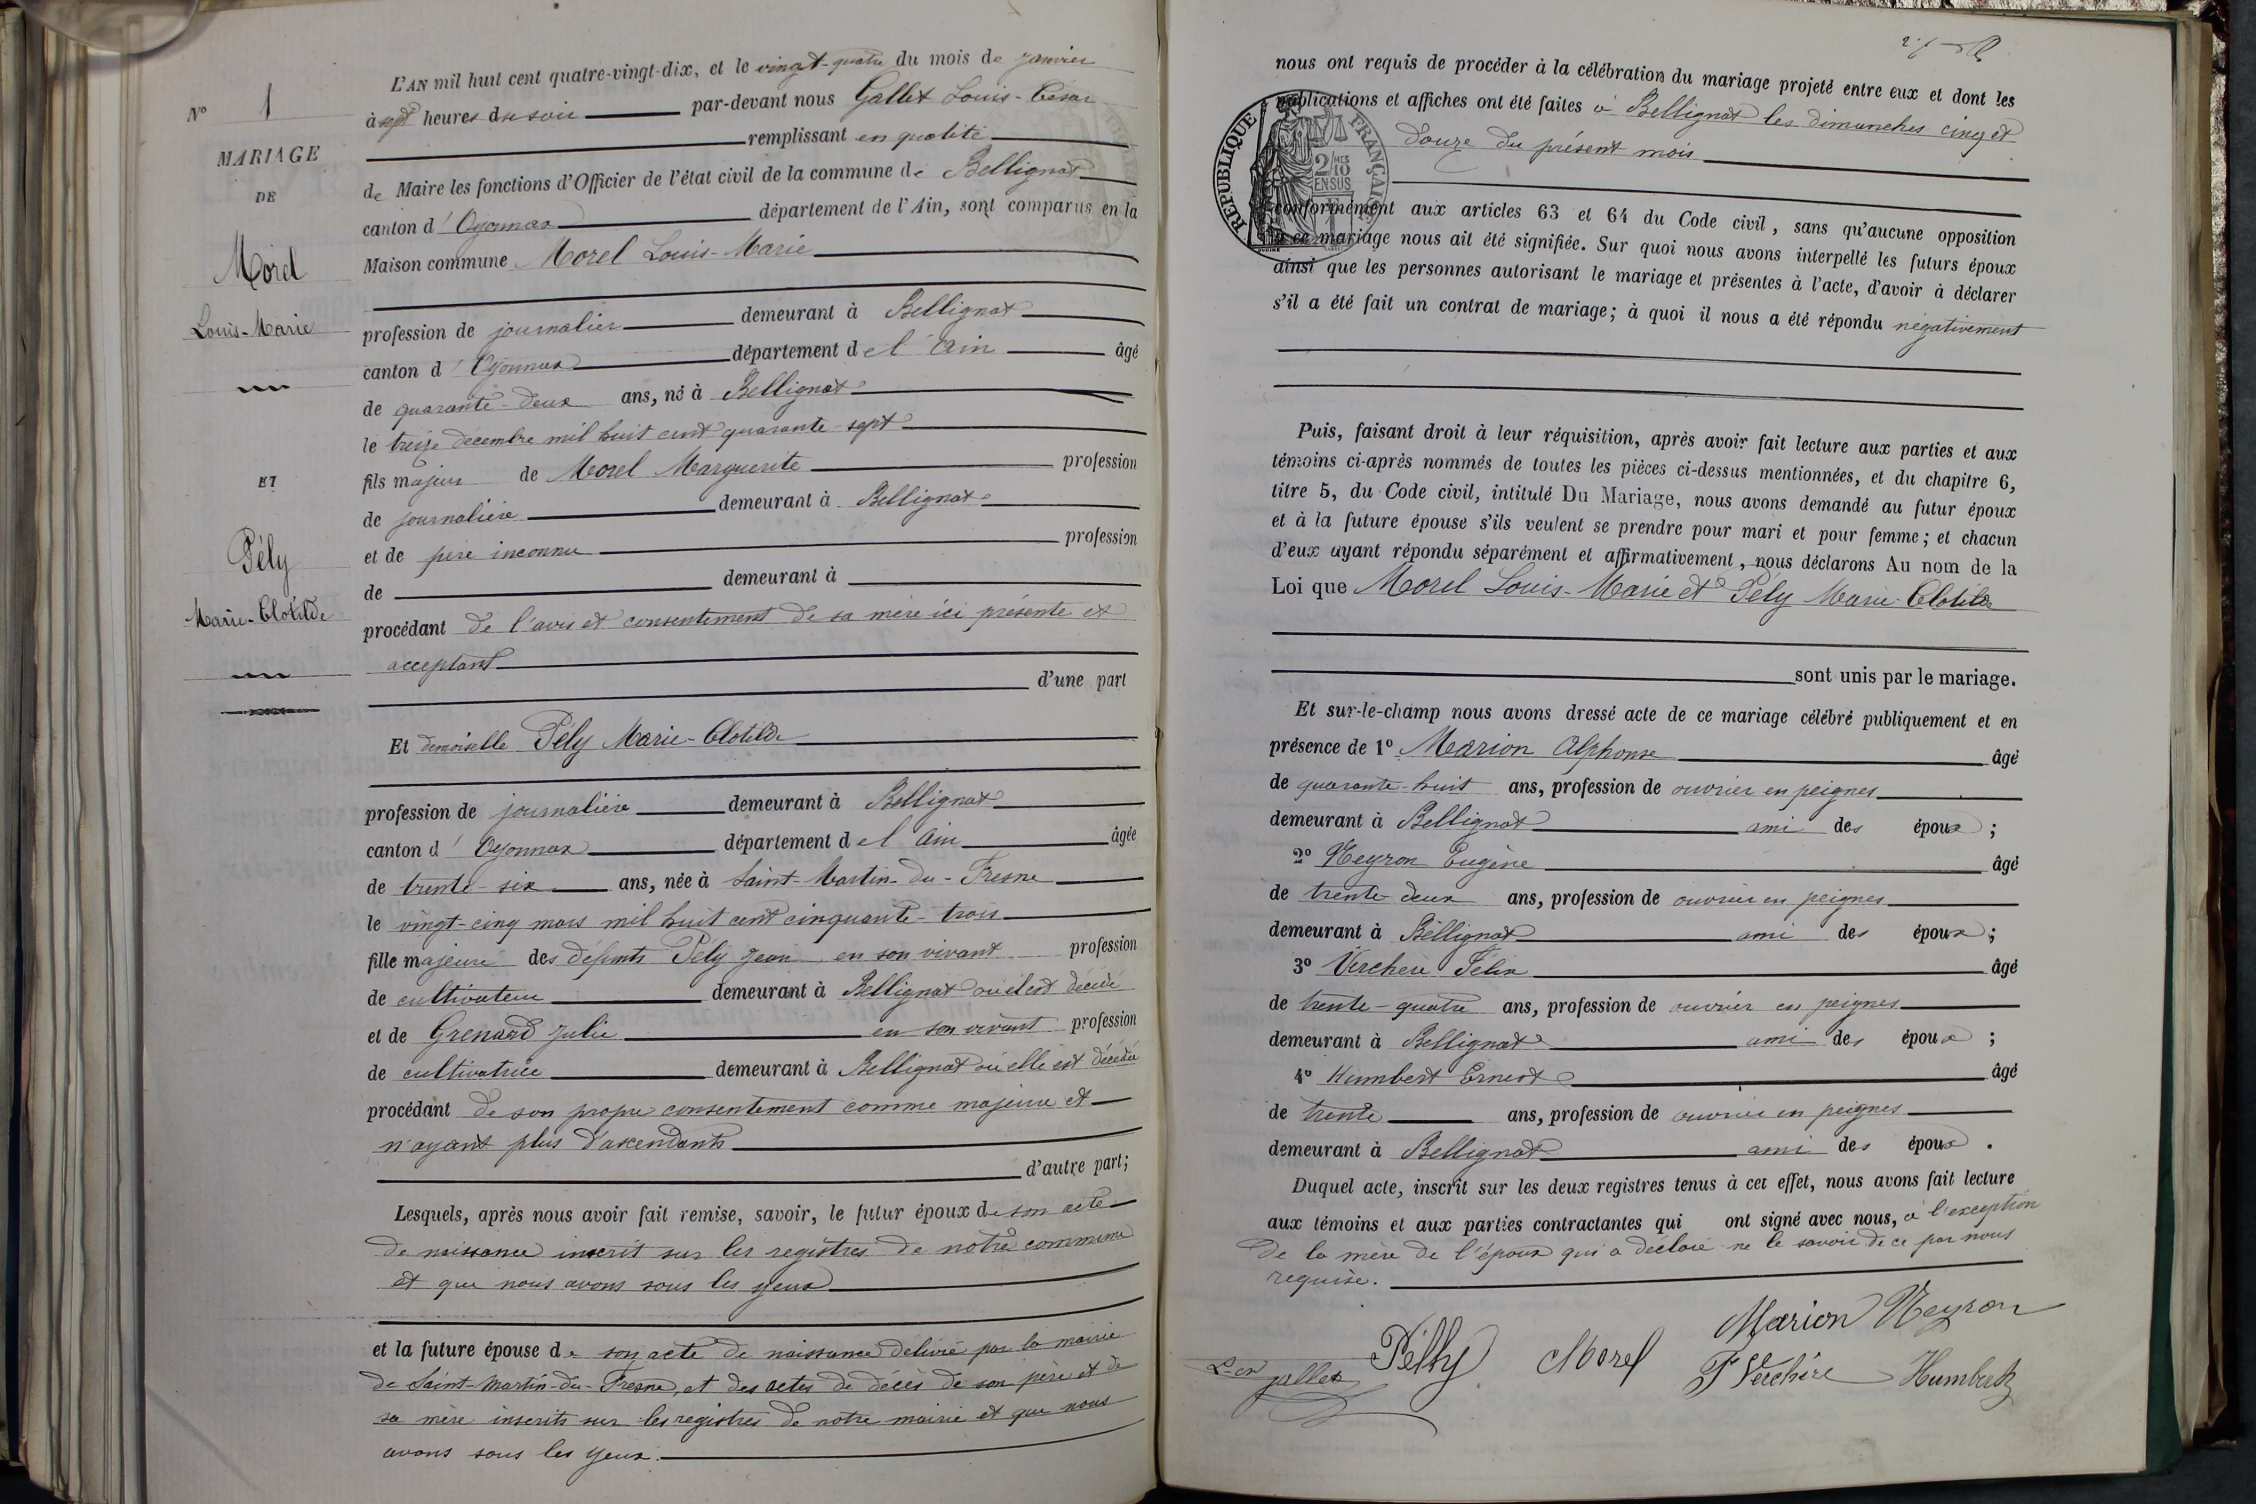 N° 1
MARIAGE
DE
Morel
Louis-Marie
ET
Pély
Marie-Clotilde
L'AN mil huit cent quatre-vingt-dix, et le vingt-quatre du mois de janvier
à sept heures du soir par-devant nous Gallet Louis-César
remplissant en qualité
de Maire les fonctions d'Officier de l'état civil de la commune de Bellignat
canton d'Oyonnax département de l'Ain, sont comparus en la
Maison commune Morel Louis-Marie
profession de journalier demeurant à Bellignat
canton d'Oyonnax département de l'Ain âgé
de quarante-deux ans, né à Bellignat
le treize décembre mil huit cent quarante-sept
fils majeur de Morel Marguerite profession
de journalière demeurant à Bellignat
et de père inconnu profession
de demeurant à
procédant de l'avis et consentement de sa mère ici présente et
acceptant
d'une part
Et demoiselle Pély Marie-Clotilde
profession de journalière demeurant à Bellignat
canton d'Oyonnax département de l'Ain âgée
de trente-six ans, née à Saint-Martin-du-Fresne
le vingt-cinq mars mil huit cent cinquante-trois
fille majeure des défunts Pély Jean en son vivant profession
de cultivateur demeurant à Bellignat où il est décédé
et de Grenard Julie en son vivant profession
de cultivatrice demeurant à Bellignat où elle est décédée
procédant de son propre consentement comme majeure et
n'ayant plus d'ascendants
d'autre part;
Lesquels, après nous avoir fait remise, savoir, le futur époux de son acte
de naissance inscrit sur les registres de notre commune
et que nous avons sous les yeux
et la future épouse de son acte de naissance délivré par la mairie
de Saint-Martin-du-Fresne, et des actes de décès de son père et de
sa mère inscrits sur les registres de notre mairie et que nous
avons sous les yeux.
nous ont requis de procéder à la célébration du mariage projeté entre eux et dont les
publications et affiches ont été faites à Bellignat les dimanches cinq et
douze du présent mois
RÉPUBLIQUE FRANÇAISE
2/10
EN SUS
conformément aux articles 63 et 64 du Code civil, sans qu'aucune opposition
à ce mariage nous ait été signifiée. Sur quoi nous avons interpellé les futurs époux
ainsi que les personnes autorisant le mariage et présentes à l'acte, d'avoir à déclarer
s'il a été fait un contrat de mariage; à quoi il nous a été répondu négativement
Puis, faisant droit à leur réquisition, après avoir fait lecture aux parties et aux
témoins ci-après nommés de toutes les pièces ci-dessus mentionnées, et du chapitre 6,
titre 5, du Code civil, intitulé Du Mariage, nous avons demandé au futur époux
et à la future épouse s'ils veulent se prendre pour mari et pour femme; et chacun
d'eux ayant répondu séparément et affirmativement, nous déclarons Au nom de la
Loi que Morel Louis-Marie et Pély Marie-Clotilde
sont unis par le mariage.
Et sur-le-champ nous avons dressé acte de ce mariage célébré publiquement et en
présence de 1° Marion Alphonse âgé
de quarante-huit ans, profession de ouvrier en peignes
demeurant à Bellignat ami des époux;
2° Neyron Eugène âgé
de trente-deux ans, profession de ouvrier en peignes
demeurant à Bellignat ami des époux;
3° Verchère Félix âgé
de trente-quatre ans, profession de ouvrier en peignes
demeurant à Bellignat ami des époux;
4° Humbert Ernest âgé
de trente ans, profession de ouvrier en peignes
demeurant à Bellignat ami des époux.
Duquel acte, inscrit sur les deux registres tenus à cet effet, nous avons fait lecture
aux témoins et aux parties contractantes qui ont signé avec nous, à l'exception
de la mère de l'époux qui a déclaré ne le savoir de ce par nous
requise.
Marion Neyron
Pélly Morel F Verchère Humbert
Gallet